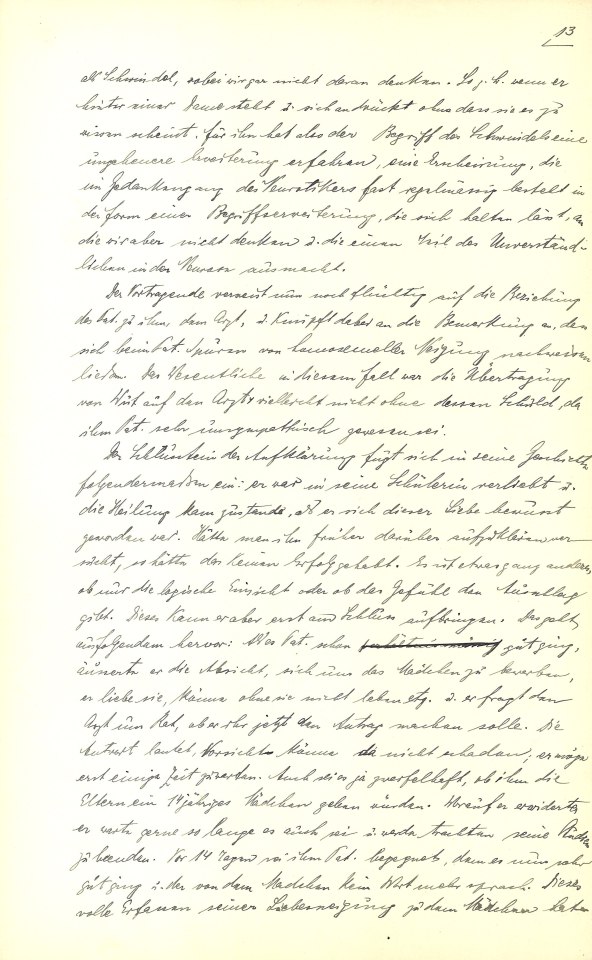 13
als Schwindel, wobei wir gar nicht daran denken. So z. B. wenn er
hinter einer Dame steht u. sich andrückt ohne dass sie es zu
wissen scheint. für ihn hat also der Begriff des Schwindels eine
ungeheuere Erweiterung erfahren, eine Erscheinung, die
im Gedankengang des Neurotikers fast regelmässig besteht in
der form einer Begriffserweiterung, die sich halten lässt, an
die wir aber nicht denken u. die einen Teil des Unverständ-
lichen in der Neurose ausmacht.
Der Vortragende verweist nun noch flüchtig auf die Beziehung
des Pat. zu ihm, dem Arzt, u. Knüpft dabei an die Bemerkung an, dass
sich beim Pat. Spuren von homosexueller Neigung nachweisen
liessen. Das Wesentliche in diesem fall war die Übertragung
von Wut auf den Arzt, vielleicht nicht ohne dessen Schuld, da
ihm Pat. sehr unsympathisch gewesen sei.
Der Schlüsstein der Aufklärung fügt sich in seine Geschichte
folgendermassen ein: er war in seine Schülerin verliebt u.
die Heilung kam zustande, als er sich dieser Liebe bewusst
geworden war. Hätte man ihn früher darüber aufzuklären ver
sucht, es hätte das keinen Erfolg gehabt. Es ist etwas ganz anderes
ob nur die logische Einsicht oder ob das Gefühl den Ausschlag
gibt. Dieses kann er aber erst am Schluss aufbringen. Das galt
aus folgendem hervor: Als es Pat. schon gut ging,
äusserte er die Absicht, sich um das Mädchen zu bewerben,
er liebe sie, könne ohne sie nicht leben etz. u. er fragt den
Arzt um Rat, ob er ihr jetzt den Antrag machen solle. Die
Antwort lautet, Vorsicht könne da nicht schaden; er möge
erst einige Zeit zuwarten. Auch sei es ja zweifelhaft, ob ihm die
Eltern ein 14 jähriges Mädchen geben würden. Worauf er erwiderte,
er warte gerne so lange es auch sei u. werde trachten seine Studien
zu beenden. Vor 14 Tagen sei ihm Pat. begegnet, dem es nun sehr
gut ging u. der von dem Mädchen kein Wort mehr sprach. Dieses
volle Erfassen seiner Liebesneigung zu dem Mädchen hatte